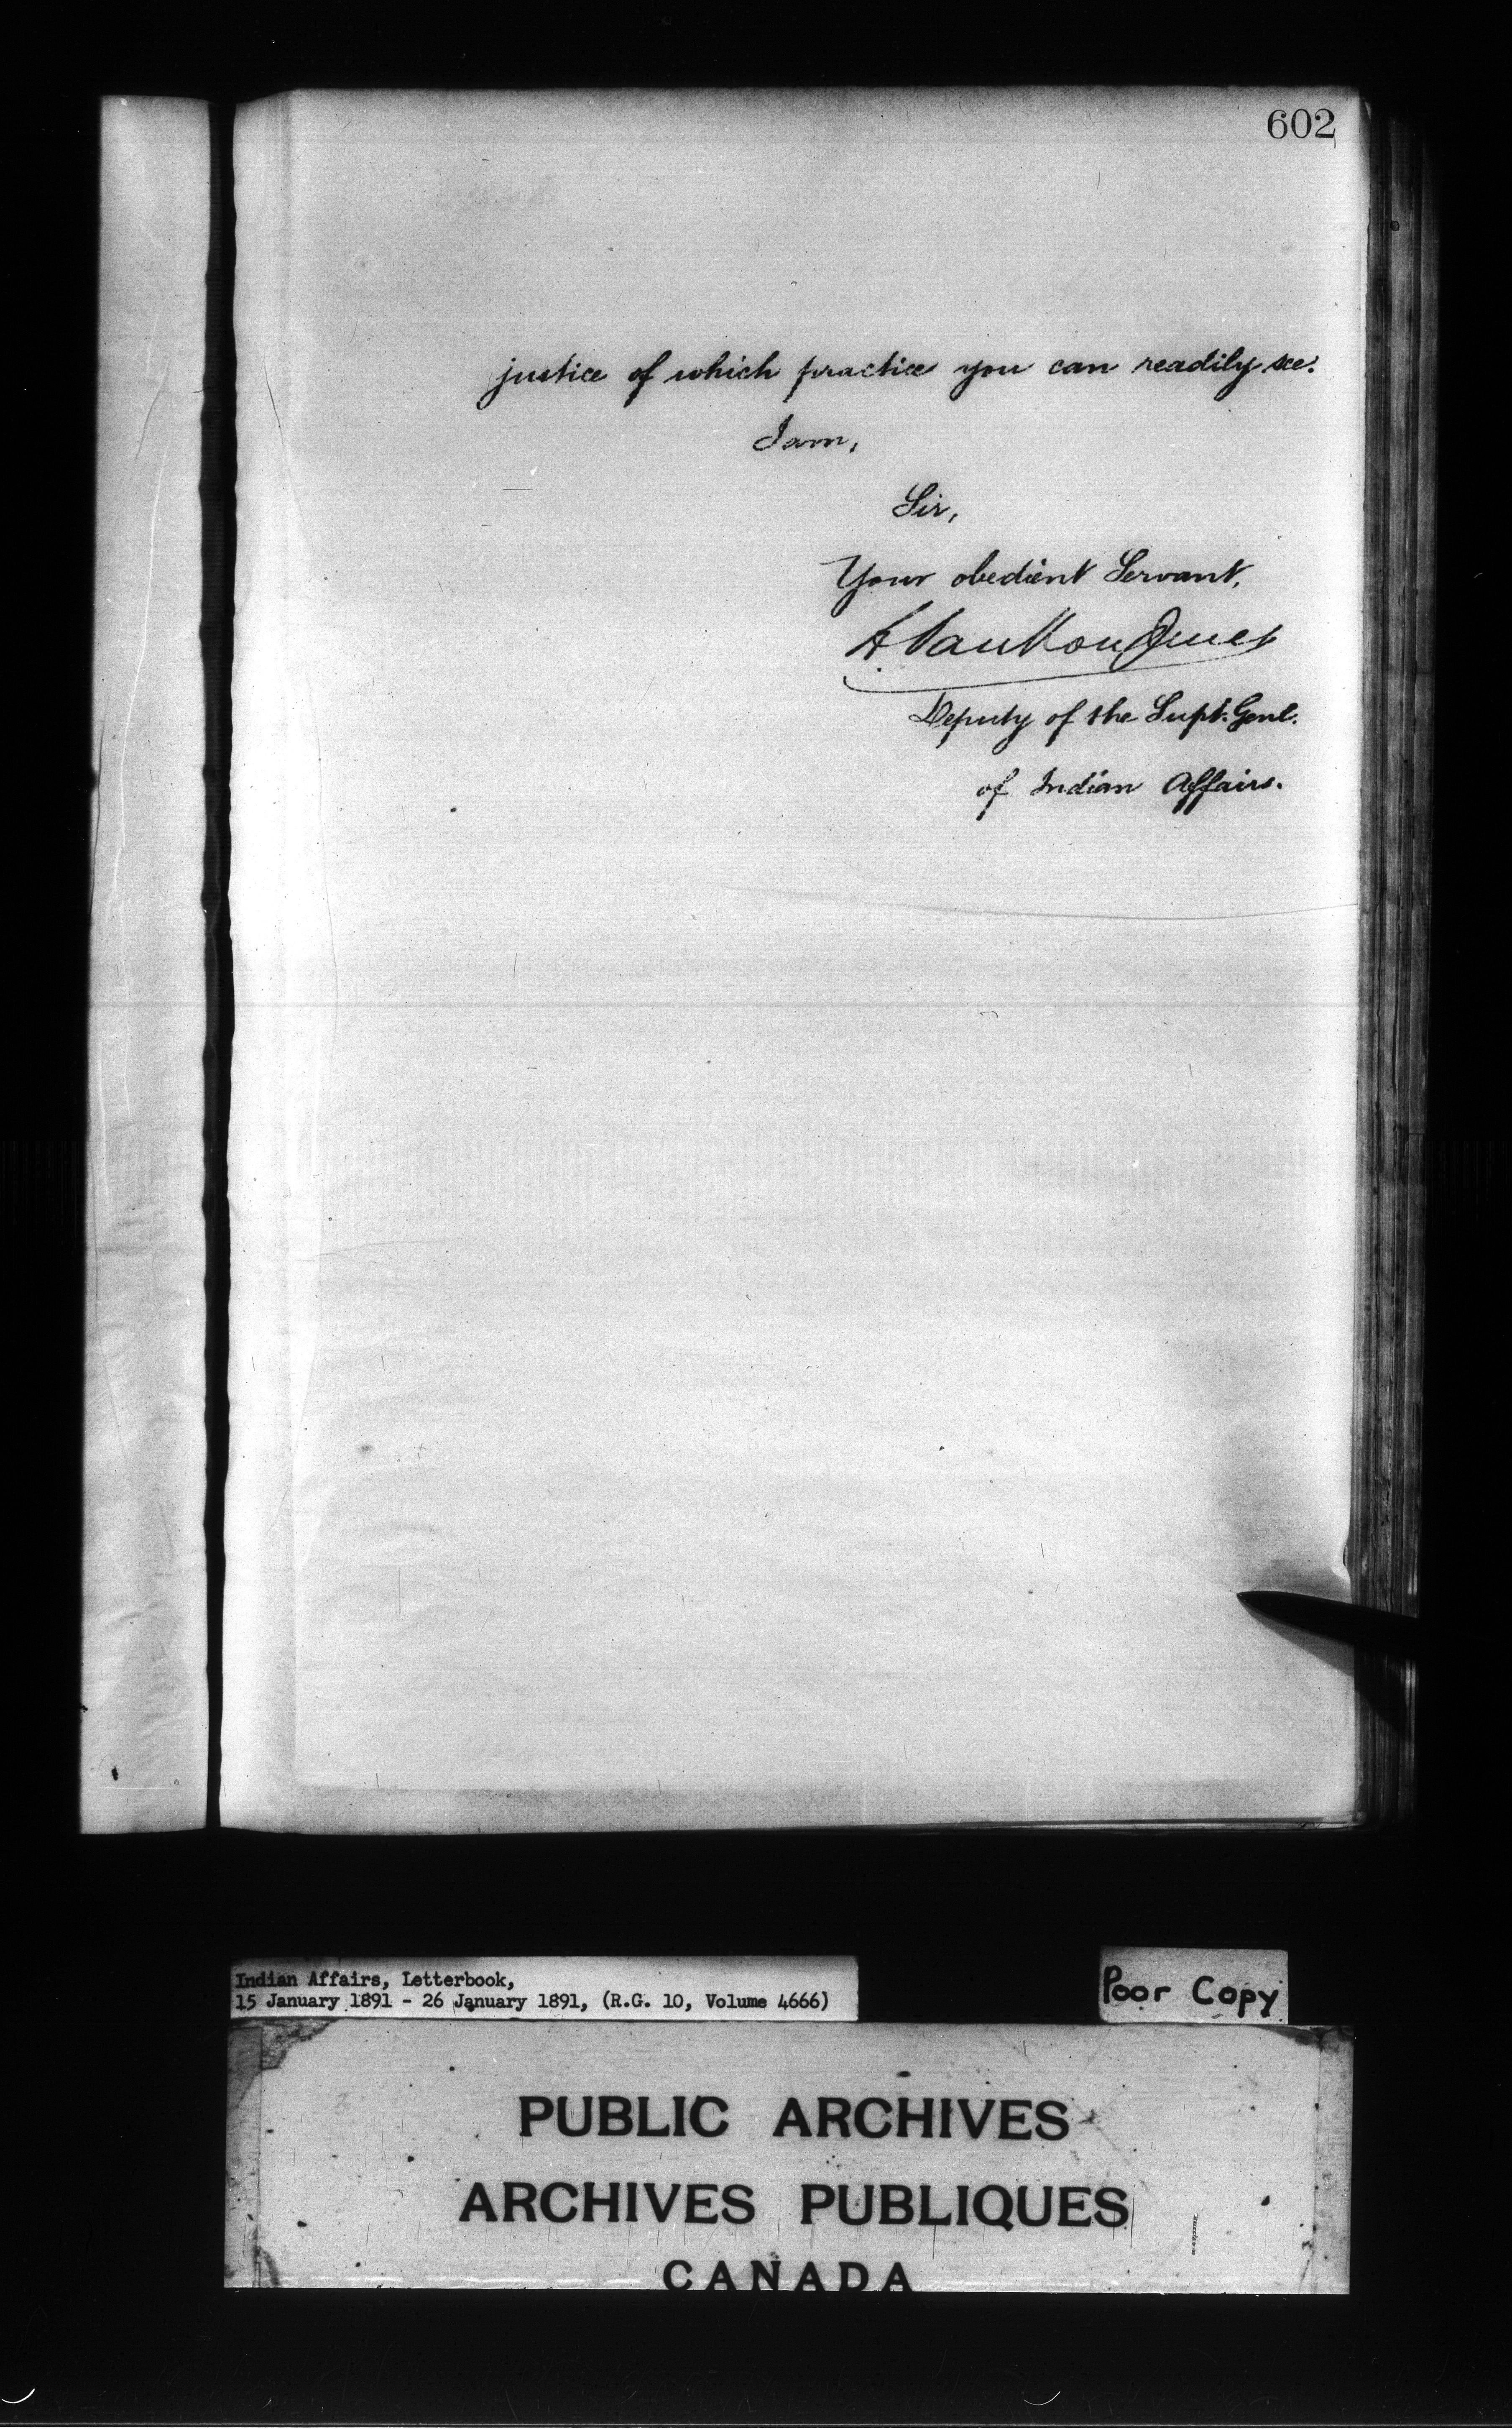 602
justice of which practice you can readily see.
I am,
Sir,
Your obedient Servant,
L VanKoughnet
Deputy of the Supt. Genl.
of Indian Affairs.
Indian Affairs, Letterbook,
15 January 1891 - 26 January 1891, (R.G. 10, Volume 4666)
Poor Copy
PUBLIC ARCHIVES
ARCHIVES PUBLIQUES
CANADA